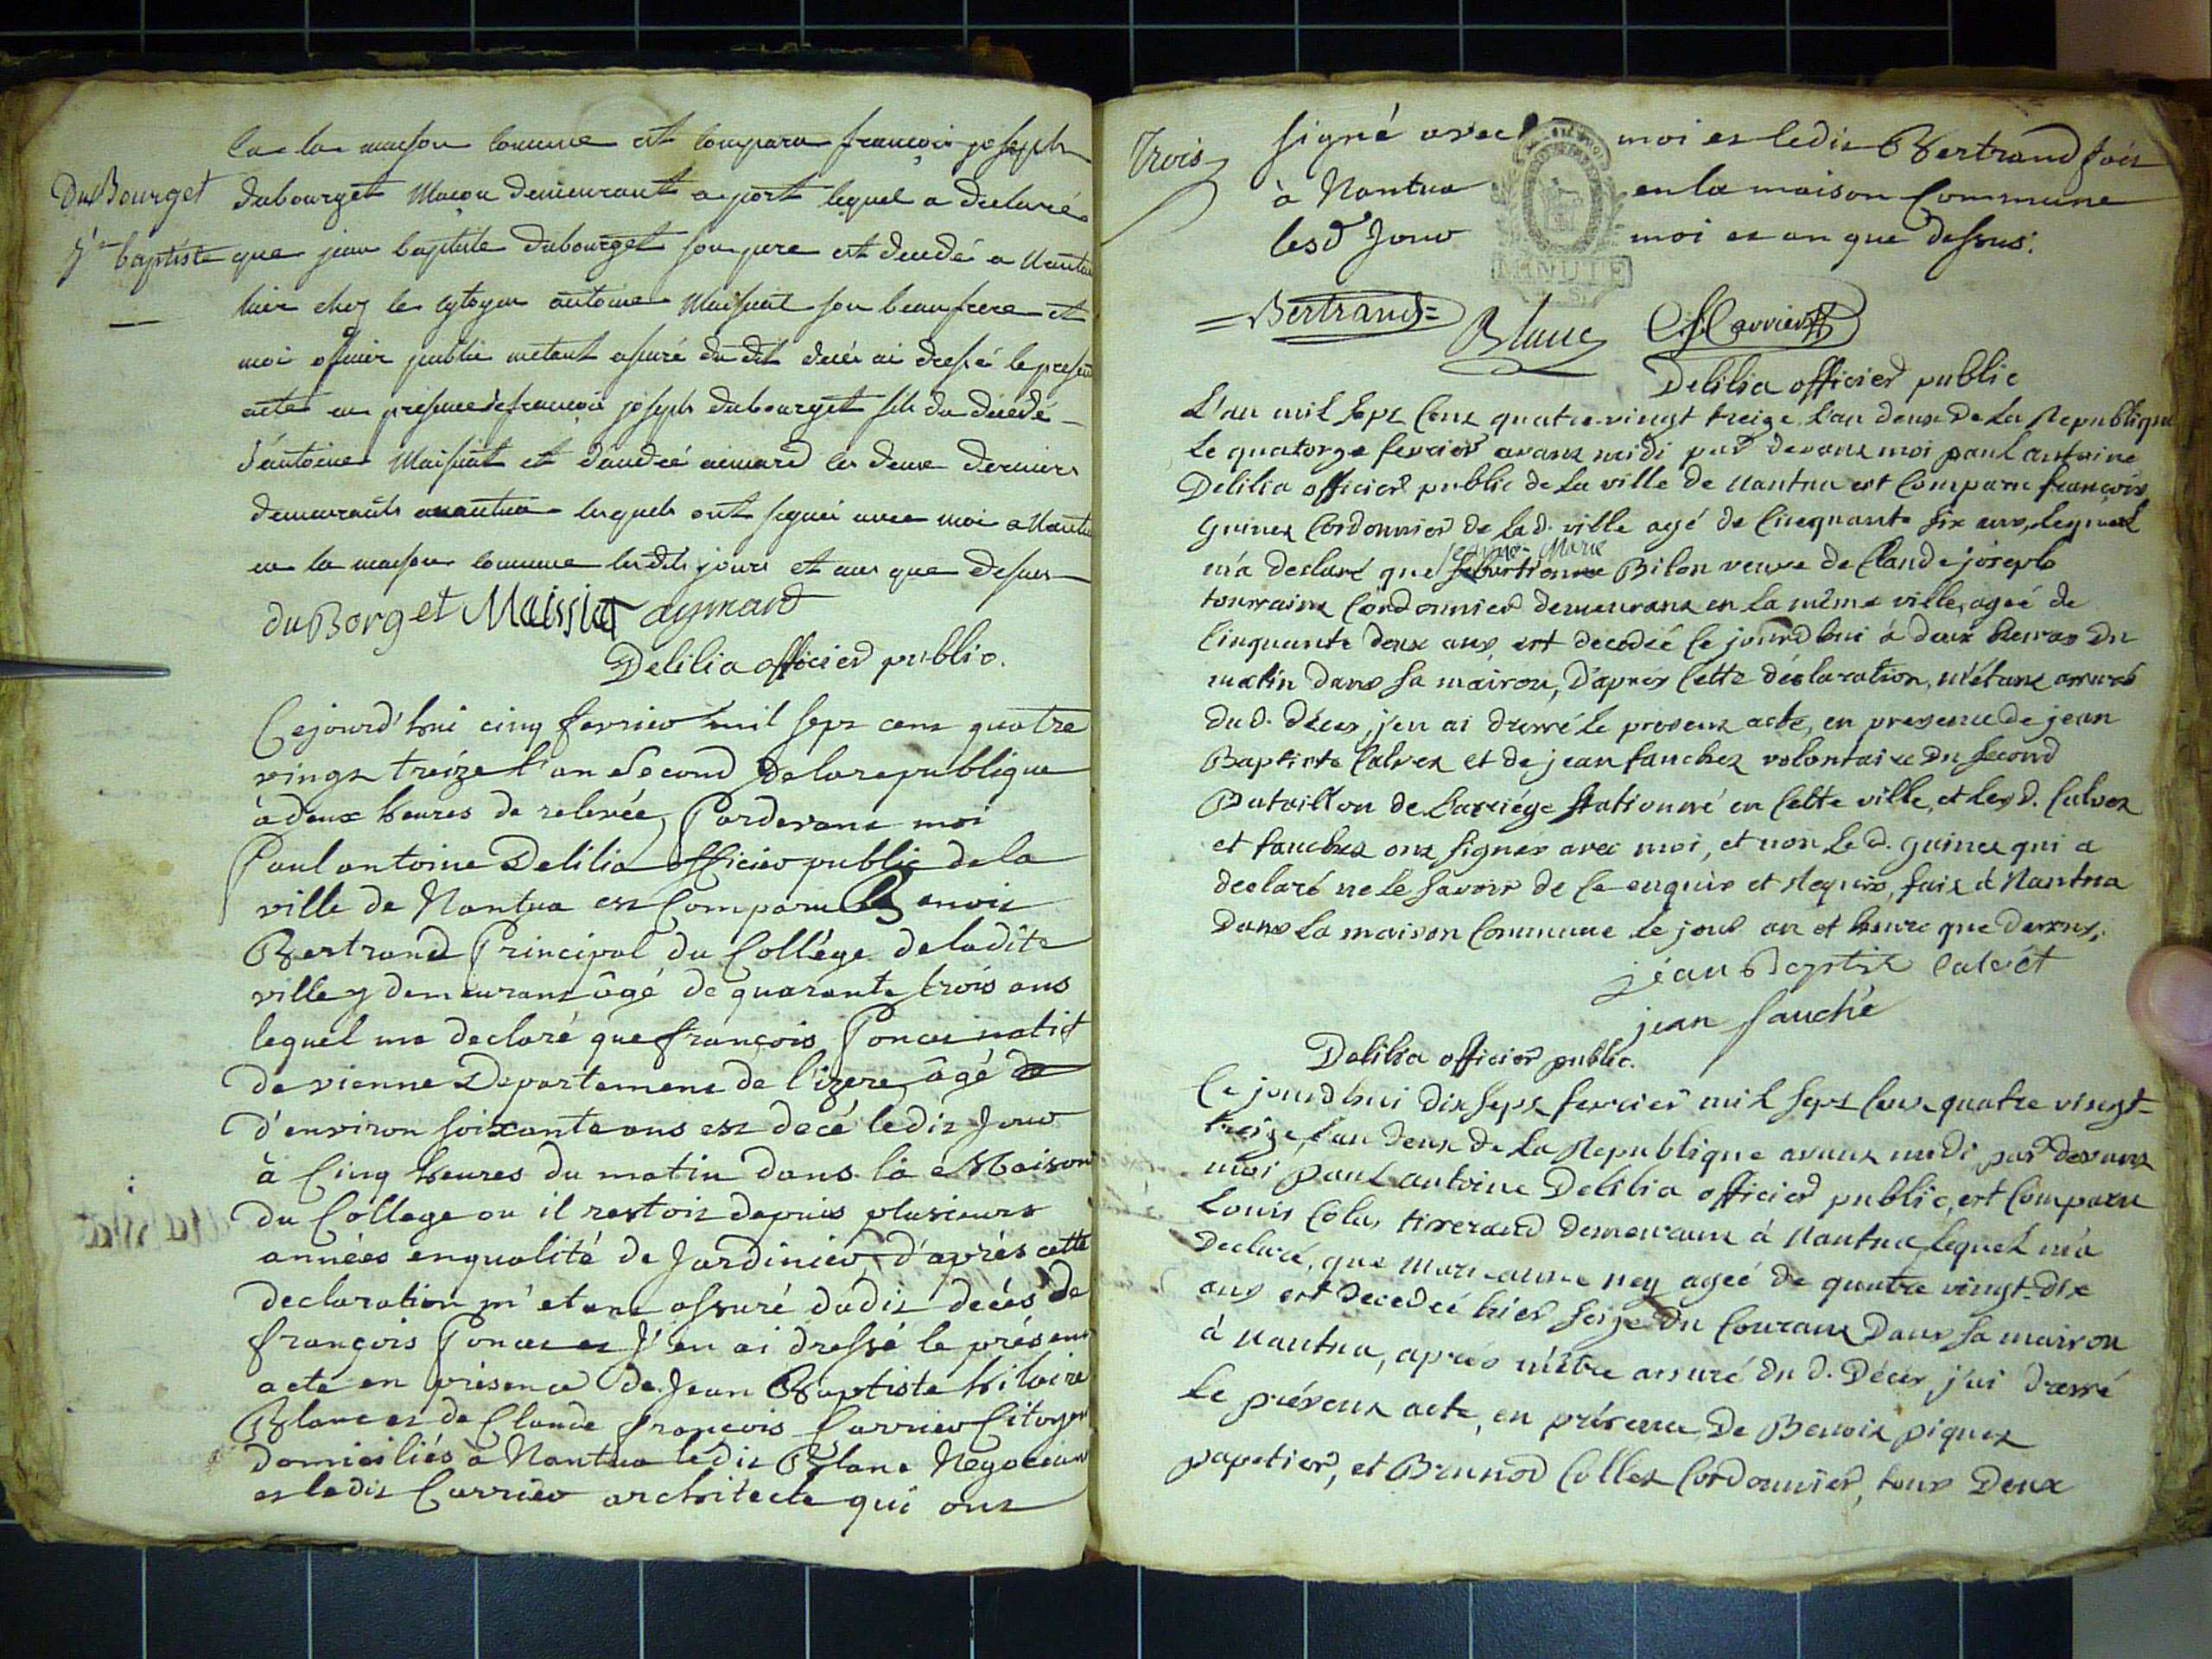 en la maison comune est comparu françois joseph
DuBourget
dubourget Maçon demeurant a port lequel a declaré
jn baptiste
que jean baptiste dubourget son pere est decedé a Nantua
hier chez le cytoyen antoine Maissiat son beaufrere et
moi officier public metant assuré du dit decés ai dressé le present
acte en presence de françois joseph dubourget fils du decedé
d'antoine Maissiat et d'andré aimard les deux derniers
demeurants anantua lesquels ont signés avec moi a Nantua
en la maison comune lesdits jours et an que dessus
duBorget Maissiat aymard
Delilia officier public.
Cejourd'hui cinq fevrier mil sept cent quatre
vingt treize l'an Second de la republique
à deux heures de relevée, Pardevant moi
Paul antoine Delilia officier public de la
ville de Nantua est Comparu Benoit
Bertrand Principal du Collége de ladite
ville y demeurant âgé de quarante trois ans
lequel ma declaré que françois Poncet natif
de vienne Departement de l'izere, âgé de
d'environ soixante ans est decé ledit Jour
à Cinq heures du matin dans la Maison
du College ou il restoit depuis plusieurs
années enqualité de Jardinier, d'après cette
declaration m'etant assuré dudit decés de
françois Poncet et J'en ai dressé le présent
acte en présence de Jean Baptiste hilaire
Blanc et de Claude françois Carrier Citoyens
domiciliés à Nantua ledit Blanc Negociant
et ledit Carrier architecte qui ont
Trois
signé avec moi et ledit Bertrand fait
à Nantua en la maison Commune
lesd Jour moi et an que dessus.
MINUTE
Bertrand Blanc Carrier
Delilia officier public
L'an mil sept cent quatre-vingt treize l'an deux de la Republique
Le quatorze fevrier avant midi par devant moi paul antoine
Delilia officier public de la ville de Nantua est Comparu françois
Guinet Cordonnier de lad. ville agé de Cinquante six ans, lequel
jeanne-Marie
m'a declaré que Bilon veuve de Claude joseph
tourraine Cordonnier demeurant en la même ville, ageé de
Cinquante deux ans, est decedeé ce jourd'hui à deux heures du
matin dans sa maison, D'après cette déclaration, m'étant assuré
du d. décès, j'en ai dressé le present acte, en presence de jean
Baptiste Calvet et de jean fauchez volontaire Du second
Bataillon de Larriége stationné en cette ville, et lesd. Calvet
et fauchez ont signer avec moi, et non led. guinet qui a
declaré ne le savoir de ce enquis et Requis, fait à Nantua
Dans la maison Commune le jour an et heure que dessus.
jean Baptiste Calvét
jean fauché
Delilia officier public.
Ce jourd'hui dix sept fevrier mil sept cent quatre vingt-
treize, l'an deux de la Republique avant midi, par devant
moi paul antoine Delilia officier public, est Comparu
Louis Colas tisserand demeurant à Nantua, lequel m'a
Declaré, que marianne ney ageé de quatre vingt-dix
ans est decedeé hier seize Du Courant Dans sa maison
à Nantua, après m'être assuré du d. Décès, j'ai dressé
Le présent acte, en présence De Benoit piquet
papetier, et Brunod Collet Cordonnier, tous Deux